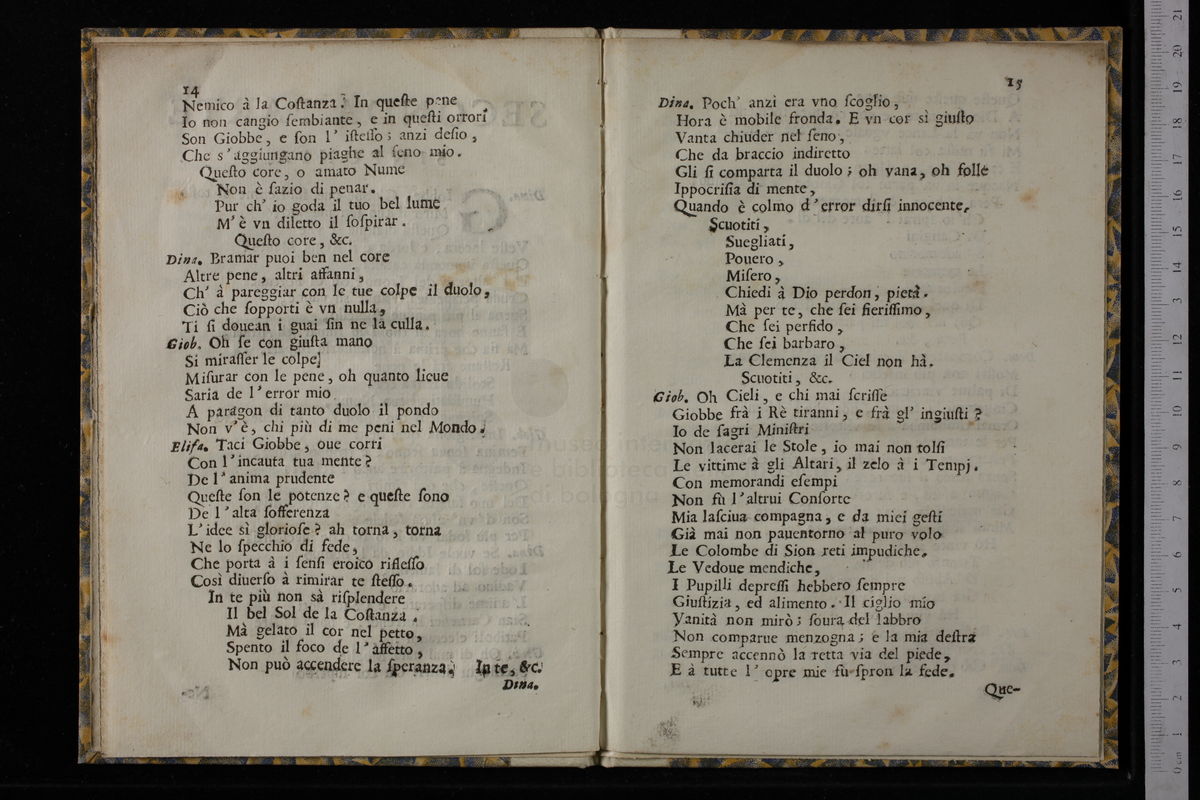 14
Nemico à la Coſtanza. In queſte pene
Io non cangio ſembiante, e in queſti orrori
Son Giobbe, e ſon l' iſteſſo; anzi deſio,
Che s'aggiungano piaghe al ſeno mio.
Queſto core, o amato Nume
Non è ſazio di penar.
Pur ch' io goda il tuo bel lume
M'è vn diletto il ſoſpirar.
Queſto core, &c.
Dina. Bramar puoi ben nel core
Altre pene, altri affanni,
Ch' à pareggiar con le tue colpe il duolo,
Ciò che ſopporti è vn nulla,
Ti ſi douean i guai ſin ne la culla.
Giob. Oh ſe con giuſta mano
Si miraſſer le colpe]
Miſurar con le pene, oh quanto lieue
Saria de l'error mio
A paragon di tanto duolo il pondo
Non v'è, chi più di me peni nel Mondo.
Elifa. Taci Giobbe, oue corri
Con l'incauta tua mente?
De l'anima prudente
Queſte ſon le potenze? e queſte ſono
De l'alta ſofferenza
L'idee sì glorioſe? ah torna, torna
Ne lo ſpecchio di fede,
Che porta à i ſenſi eroico rifleſſo
Così diuerſo à rimirar te ſteſſo.
In te più non sà riſplendere
Il bel Sol de la Coſtanza.
Mà gelato il cor nel petto,
Spento il foco de l'affetto,
Non può accendere la ſperanza. In te, &c.
Dina.
15
Dina. Poch' anzi era vno ſcoglio,
Hora è mobile fronda. E vn cor sì giuſto
Vanta chiuder nel ſeno,
Che da braccio indiretto
Gli ſi comparta il duolo; oh vana, oh folle
Ippocriſia di mente,
Quando è colmo d'error dirſi innocente.
Scuotiti,
Suegliati,
Pouero,
Miſero,
Chiedi à Dio perdon, pietà.
Mà per te, che ſei fieriſſimo,
Che ſei perfido,
Che ſei barbaro,
La Clemenza il Ciel non hà.
Scuotiti, &c.
Giob. Oh Cieli, e chi mai ſcriſſe
Giobbe frà i Rè tiranni, e frà gl' ingiuſti?
Io de ſagri Miniſtri
Non lacerai le Stole, io mai non tolſi
Le vittime à gli Altari, il zelo à i Tempj.
Con memorandi eſempi
Non fù l'altrui Conſorte
Mia laſciua compagna, e da miei geſti
Già mai non pauentorno al puro volo
Le Colombe di Sion reti impudiche.
Le Vedoue mendiche,
I Pupilli depreſſi hebbero ſempre
Giuſtizia, ed alimento. Il ciglio mio
Vanità non mirò; ſoura del labbro
Non comparue menzogna; e la mia deſtra
Sempre accennò la retta via del piede,
E à tutte l' opre mie fù ſpron la fede.
Que-